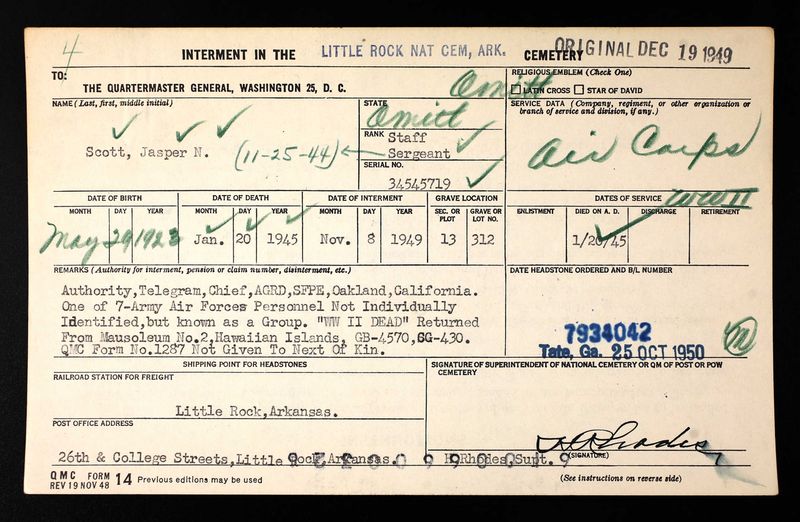 4
INTERMENT IN THE LITTLE ROCK NAT CEM, ARK. CEMETERY ORIGINAL DEC 19 1949
TO:
THE QUARTERMASTER GENERAL, WASHINGTON 25, D. C.
RELIGIOUS EMBLEM (Check One)
Omitt
LATIN CROSS STAR OF DAVID
NAME (Last, first, middle initial)
Scott, Jasper N. (11-25-44)
STATE
Omitt
RANK Staff
Sergeant
SERIAL NO.
34545719
SERVICE DATA (Company, regiment, or other organization or
branch of service and division, if any.)
Air Corps
DATE OF BIRTH DATE OF DEATH DATE OF INTERMENT GRAVE LOCATION DATES OF SERVICE WW II
MONTH DAY YEAR MONTH DAY YEAR MONTH DAY YEAR SEC. OR PLOT GRAVE OR LOT NO. ENLISTMENT DIED ON A. D. DISCHARGE RETIREMENT
May 29 1923 Jan. 20 1945 Nov. 8 1949 13 312 1/20/45
REMARKS (Authority for interment, pension or claim number, disinterment, etc.)
Authority,Telegram,Chief,AGRD,SFPE,Oakland,California.
One of 7-Army Air Forces Personnel Not Individually
Identified,but known as a Group. "WW II DEAD" Returned
From Mausoleum No.2,Hawaiian Islands, GB-4570,SG-430.
QMC Form No.1287 Not Given To Next Of Kin.
DATE HEADSTONE ORDERED AND B/L NUMBER
7934042
Tate, Ga. 25 OCT 1950
SHIPPING POINT FOR HEADSTONES
RAILROAD STATION FOR FREIGHT
Little Rock,Arkansas.
POST OFFICE ADDRESS
26th & College Streets,Little Rock,Arkansas.
SIGNATURE OF SUPERINTENDENT OF NATIONAL CEMETERY OR QM OF POST OR POW
CEMETERY
Rhodes,Supt.
(SIGNATURE)
QMC FORM 14 Previous editions may be used
REV 19 NOV 48
(See instructions on reverse side)